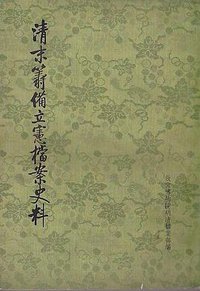 清末筹備立憲檔案史料